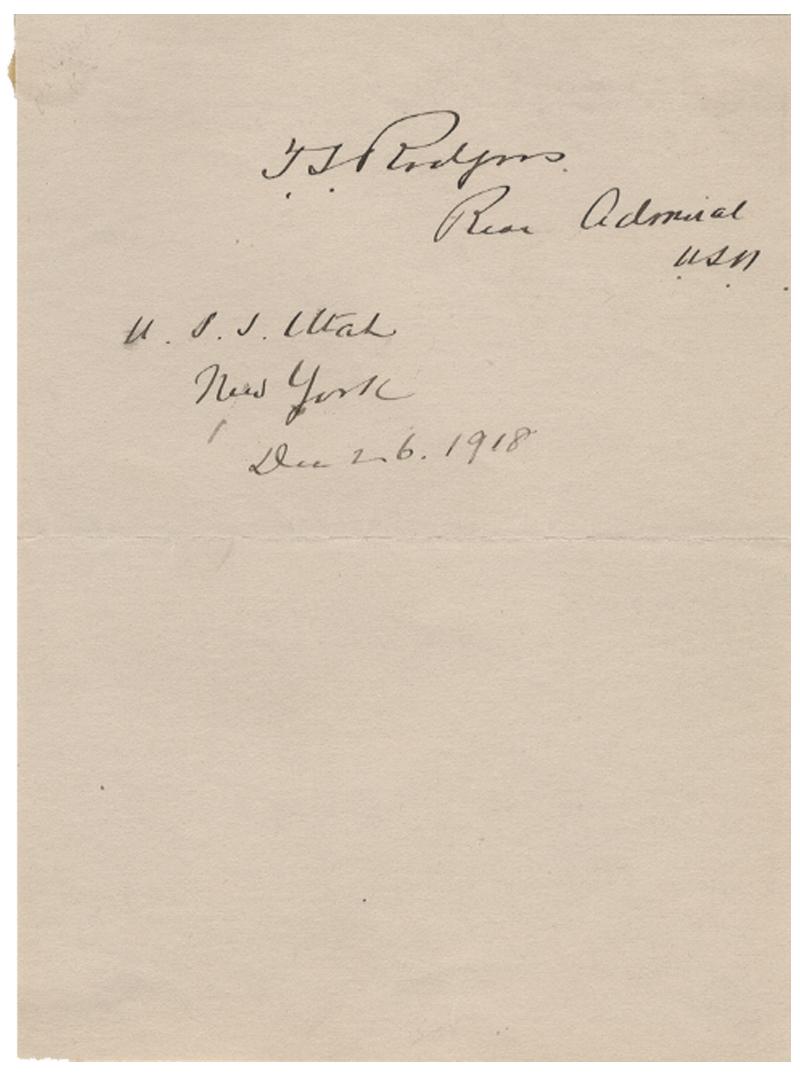 T. S. Rodgers.
Rear Admiral
U.S.N.
U. S. S. Utah
New York
Dec 26. 1918